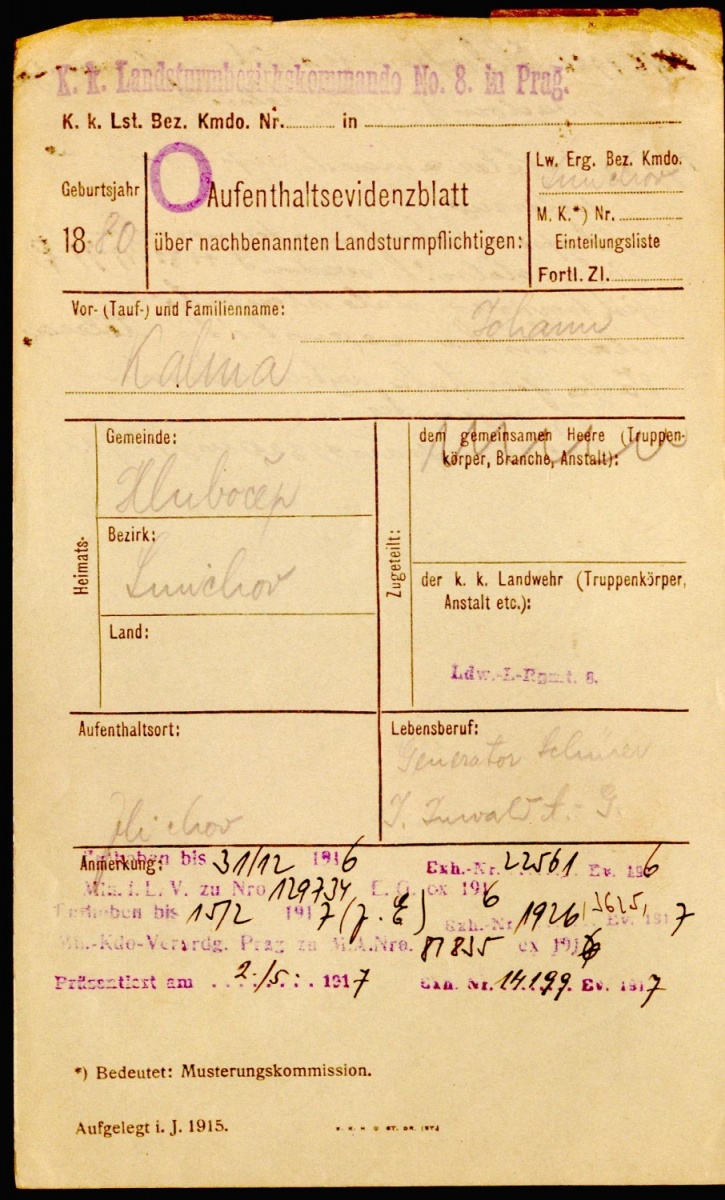 K. k. Landsturmbezirkskommando No. 8. in Prag.
K. k. Lst. Bez. Kmdo. Nr. in
Geburtsjahr
1880
O
Aufenthaltsevidenzblatt
über nachbenannten Landsturmpflichtigen:
Lw. Erg. Bez. Kmdo.
Smichov
M. K.*) Nr.
Einteilungsliste
Fortl. Zl.
Vor- (Tauf-) und Familienname:
Johann
Kalina
Heimats-
Gemeinde:
Hlubočep
Bezirk:
Smichov
Land:
Zugeteilt:
dem gemeinsamen Heere (Truppen-
körper, Branche, Anstalt):
der k. k. Landwehr (Truppenkörper,
Anstalt etc.):
Ldw.-I-Rgmt. 8.
Aufenthaltsort:
Zlichov
Lebensberuf:
Generator Schürer
J. Inwald A.-G.
Anmerkung:
Enthoben bis 31/12 1916 Exh.-Nr. 22561 Ev. 1916
Min. f. L. V. zu Nro 129734 ex 1916
Enthoben bis 15/2 1917 (j. E) Exh.-Nr 1926, 3625, Ev. 1917
Mil.-Kdo-Verordg. Prag zu M.A. Nro. 81835 ex 1916
Präsentiert am 2./5. 1917 Exh. Nr. 14.199. Ev. 1917
*) Bedeutet: Musterungskommission.
Aufgelegt i. J. 1915.